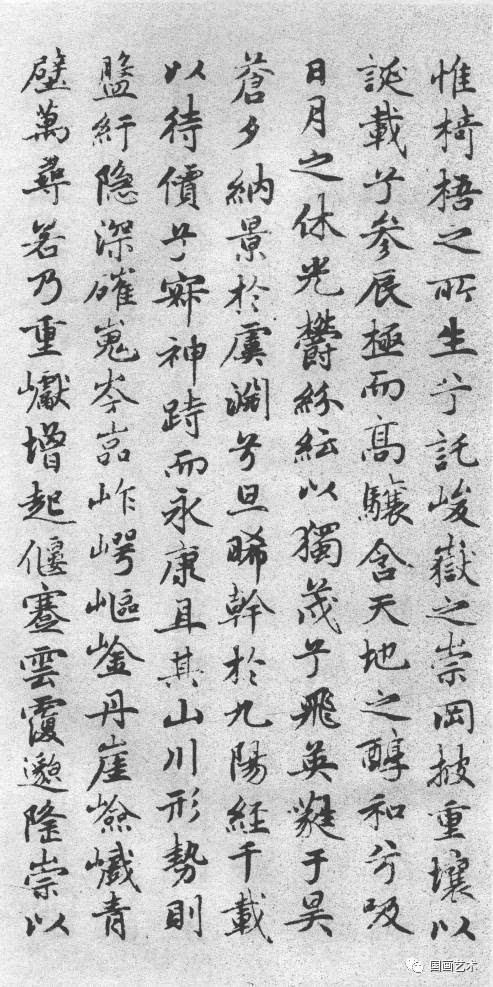 惟椅梧之所生兮託峻嶽之崇岡披重壤以
誕載兮參辰極而高驤含天地之醇和兮吸
日月之休光欝紛紜以獨茂兮飛英蕤于昊
蒼夕納景於虞淵兮旦晞幹於九陽經千載
以待價兮寂神跱而永康且其山川形勢則
盤紆隱深磪嵬岑嵓岞崿嶇崟丹崖嶮巇青
壁萬尋若乃重巘增起偃蹇雲覆邈隆崇以
国画艺术